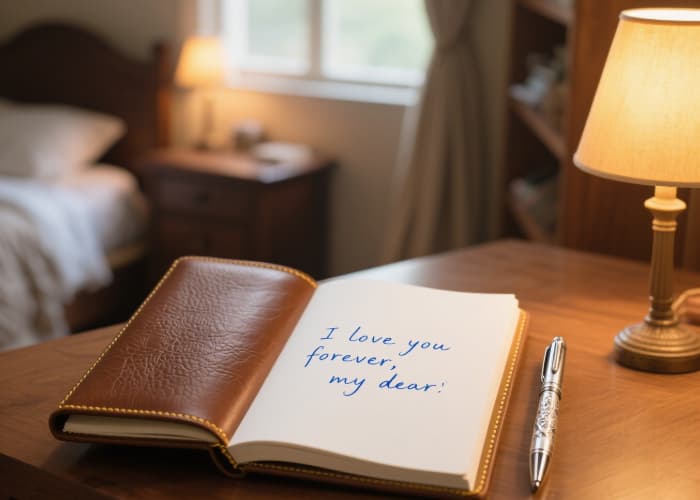 I love you
forever,
my dear!